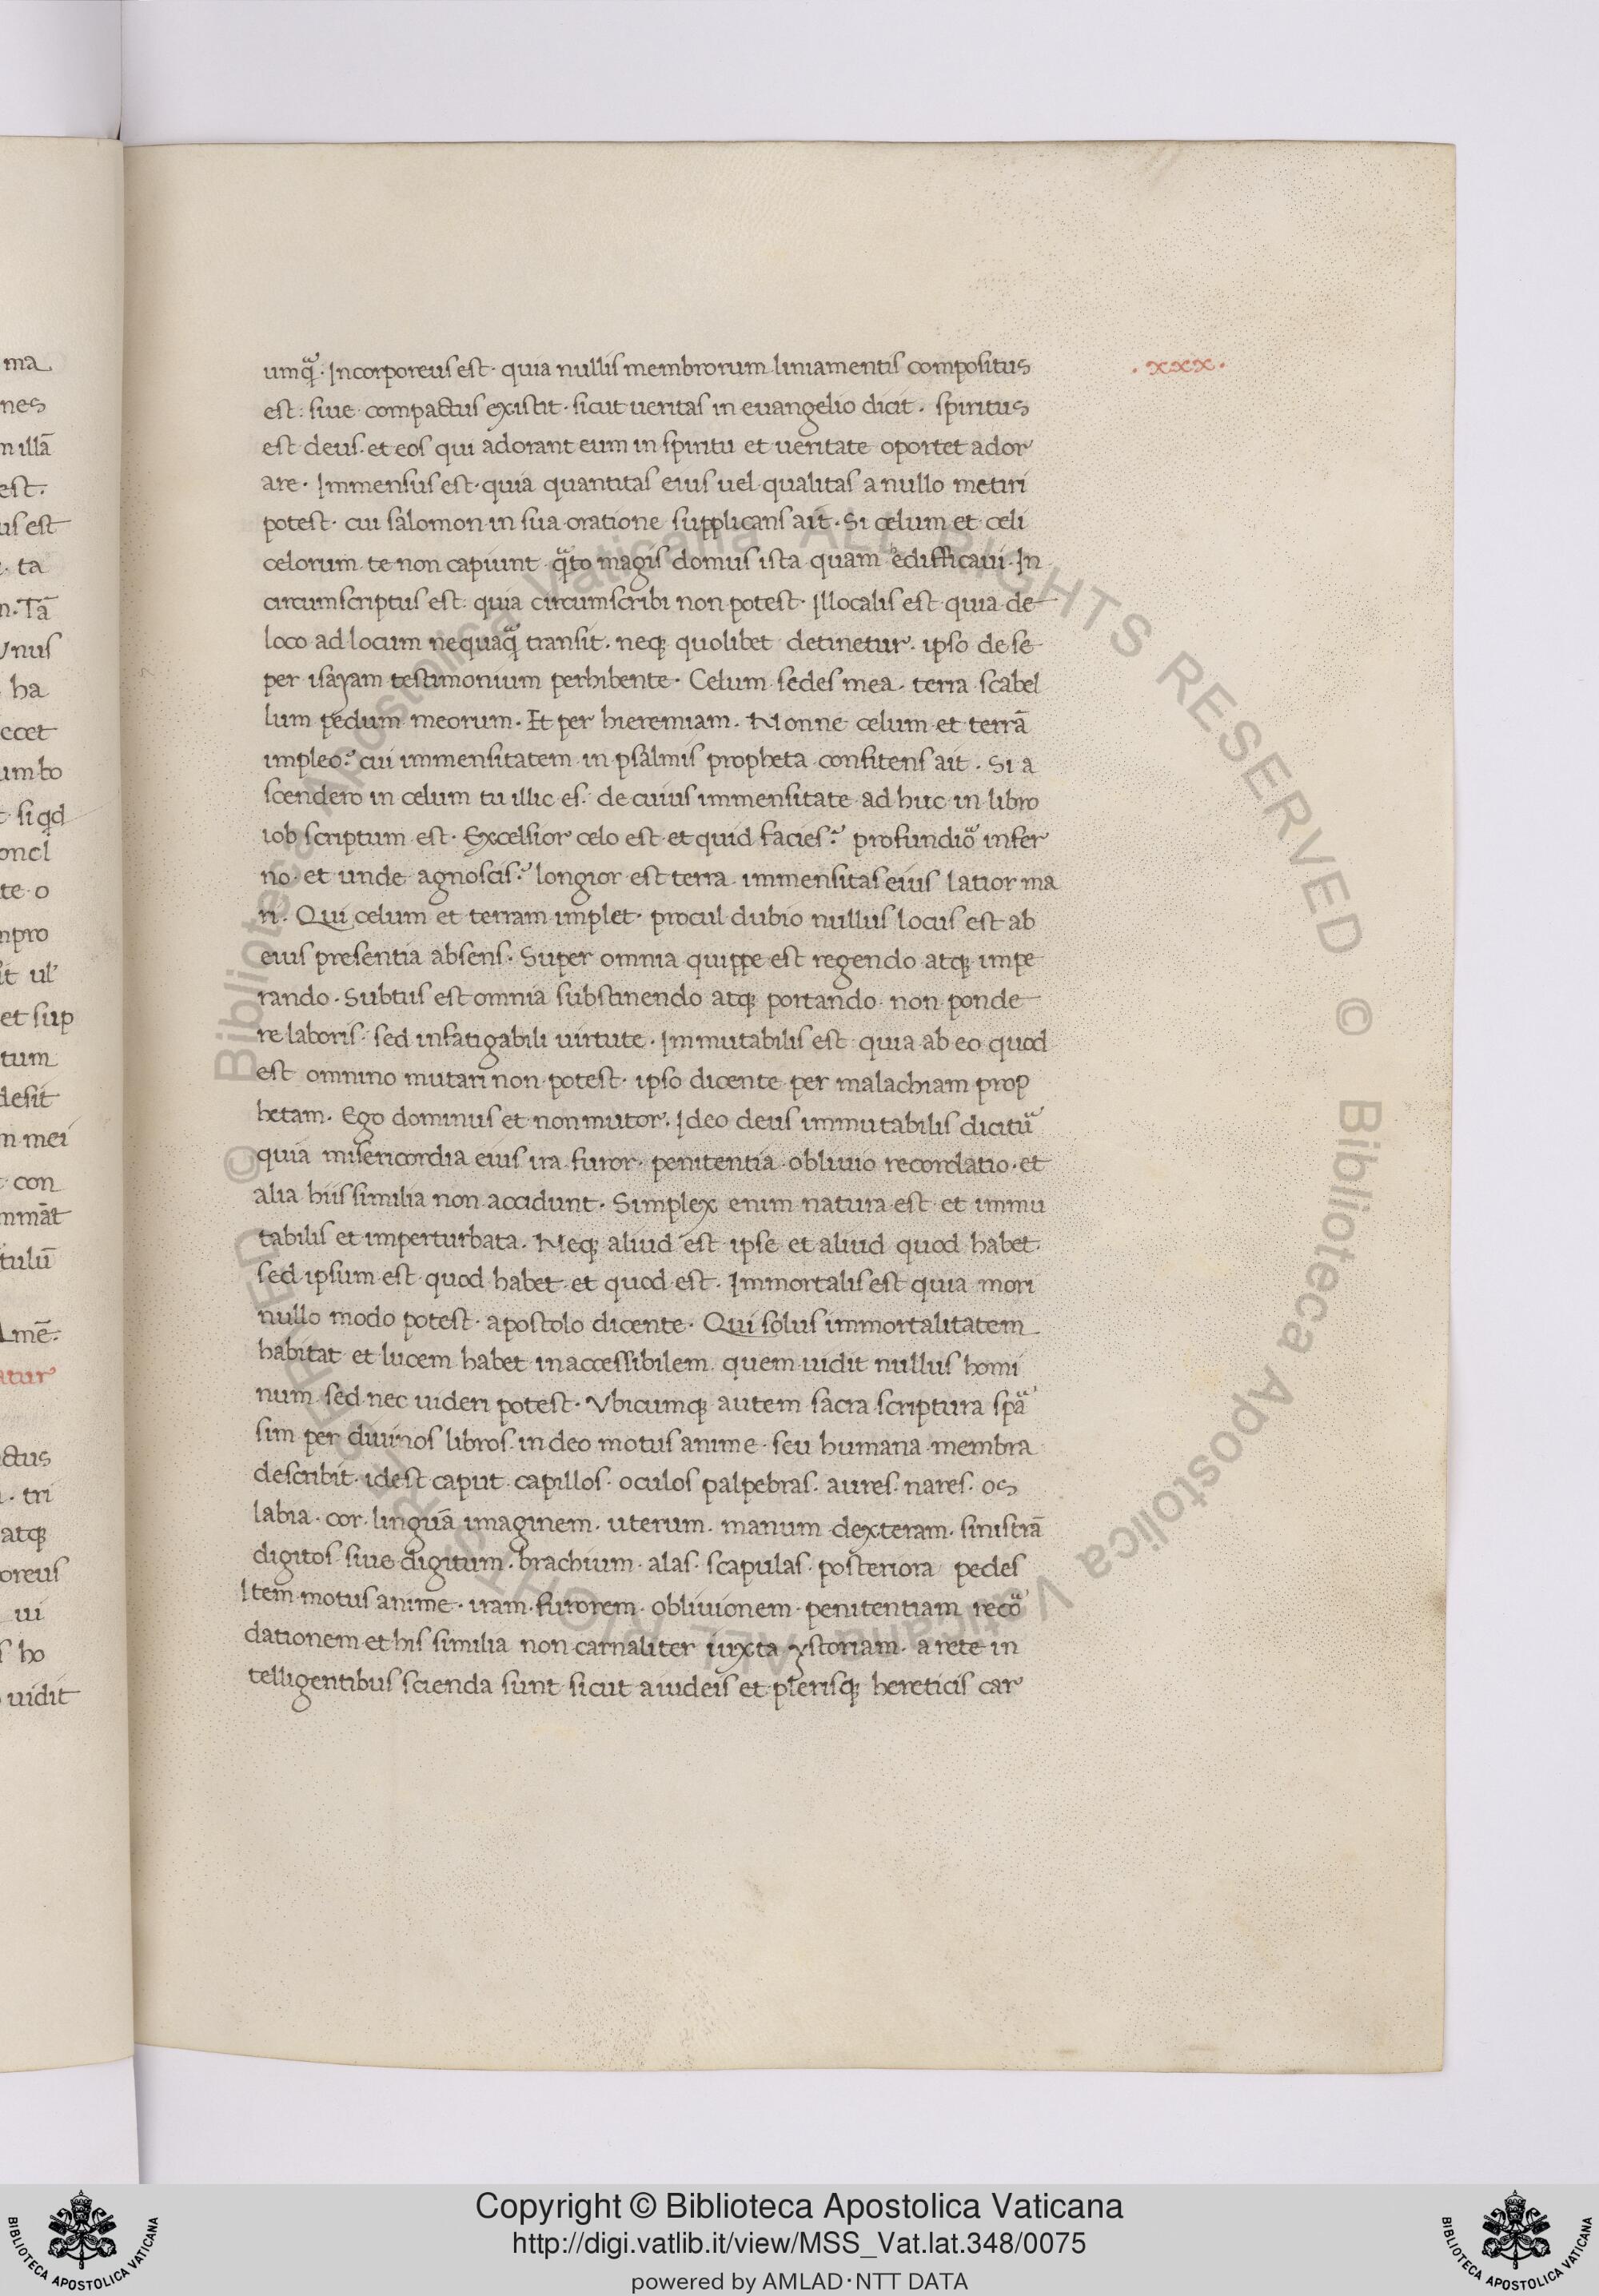 ma
nes
m illā
est.
us est
ta
n. Tā
Vnus
ha
ecet
um bo
si qd
oncl
te o
npro
it ul'
et sup
tum
desit
m mei
con
mmāt
tulū
mē.
atur
ctus
tri
atq;
oreus
ui
s ho
uidit
. xxx .
umqᷓ. Incorporeus est. quia nullis membrorum liniamentis compositus
est. siue compactus existit. sicut ueritas in euangelio dicit. spiritus
est deus. et eos qui adorant eum in spiritu et ueritate oportet ador
are. Immensus est. quia quantitas eius uel qualitas a nullo metiri
potest. cui salomon in sua oratione supplicans ait. Si celum et celi
celorum te non capiunt qᷓto magis domus ista quam edifficaui. In
circumscriptus est. quia circumscribi non potest. Illocalis est quia de
loco ad locum nequaqᷓ transit. neq; quolibet detinetur. ipso de se
per isayam testimonium perhibente. Celum sedes mea. terra scabel
lum pedum meorum. Et per hieremiam. Nonne celum et terrā
impleo? cui immensitatem in psalmis propheta confitens ait. Si a
scendero in celum tu illic es. de cuius immensitate ad huc in libro
iob scriptum est. Excelsior celo est et quid facies? profundioᷓ infer
no. et unde agnoscis? longior est terra immensitas eius latior ma
ri. Qui celum et terram implet. procul dubio nullus locus est ab
eius presentia absens. Super omnia quippe est regendo atq; impe
rando. Subtus est omnia substinendo atq; portando non ponde
re laboris. sed infatigabili uirtute. Immutabilis est quia ab eo quod
est omnino mutari non potest. ipso dicente per malachiam prop
hetam. Ego dominus et non mutor. Ideo deus immutabilis dicituᷓ
quia misericordia eius ira furor. penitentia. obliuio recordatio. et
alia hiis similia non accidunt. Simplex enim natura est et immu
tabilis et imperturbata. Neq; aliud est ipse et aliud quod habet.
sed ipsum est quod habet et quod est. Immortalis est quia mori
nullo modo potest. apostolo dicente. Qui solus immortalitatem
habitat et lucem habet inaccessibilem. quem uidit nullus homi
num sed nec uideri potest. Vbicumq; autem sacra scriptura spaᷓ
sim per diuinos libros in deo motus anime. seu humana membra
describit. idest caput. capillos. oculos palpebras. aures. nares. os
labia. cor. linguā imaginem. uterum. manum dexteram. sinistrā
digitos siue digitum. brachium. alas. scapulas. posteriora pedes
Item motus anime. iram. furorem. obliuionem. penitentiam recoᷓ
dationem et his similia non carnaliter iuxta ystoriam. a rete in
telligentibus scienda sunt sicut a iudeis et plerisq; hereticis car
© Biblioteca Apostolica Vaticana ALL RIGHTS RESERVED © Biblioteca Apostolica Vaticana ALL RIGHTS RESERVED
Copyright © Biblioteca Apostolica Vaticana
http://digi.vatlib.it/view/MSS_Vat.lat.348/0075
powered by AMLAD·NTT DATA
BIBLIOTECA APOSTOLICA VATICANA
BIBLIOTECA APOSTOLICA VATICANA